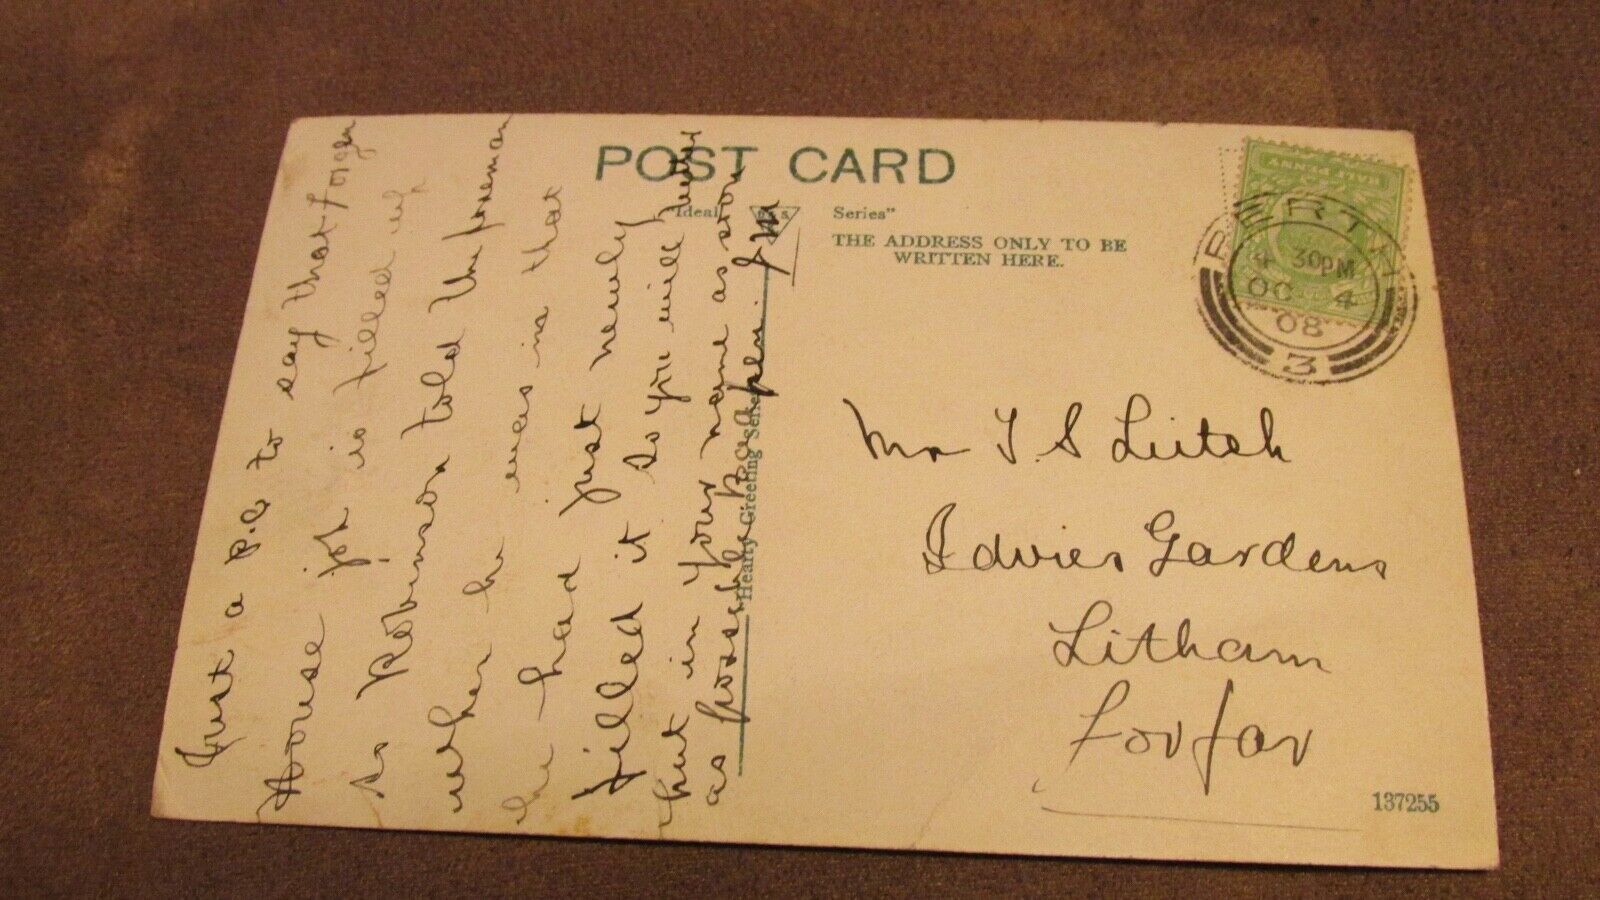 POST CARD
"Ideal Series"
THE ADDRESS ONLY TO BE
WRITTEN HERE.
HALF PENNY
PERTH
4 30PM
OC 4
08
3
Mr T. S Leitch
Idvies Gardens
Litham
Forfar
137255
Hearty Greeting Series
Just a p.c to say that
House job is filled up
so Robinson told the foreman
when he was in that
he had just newly
filled it so you will better
put in your name as soon
as possible pen. J M